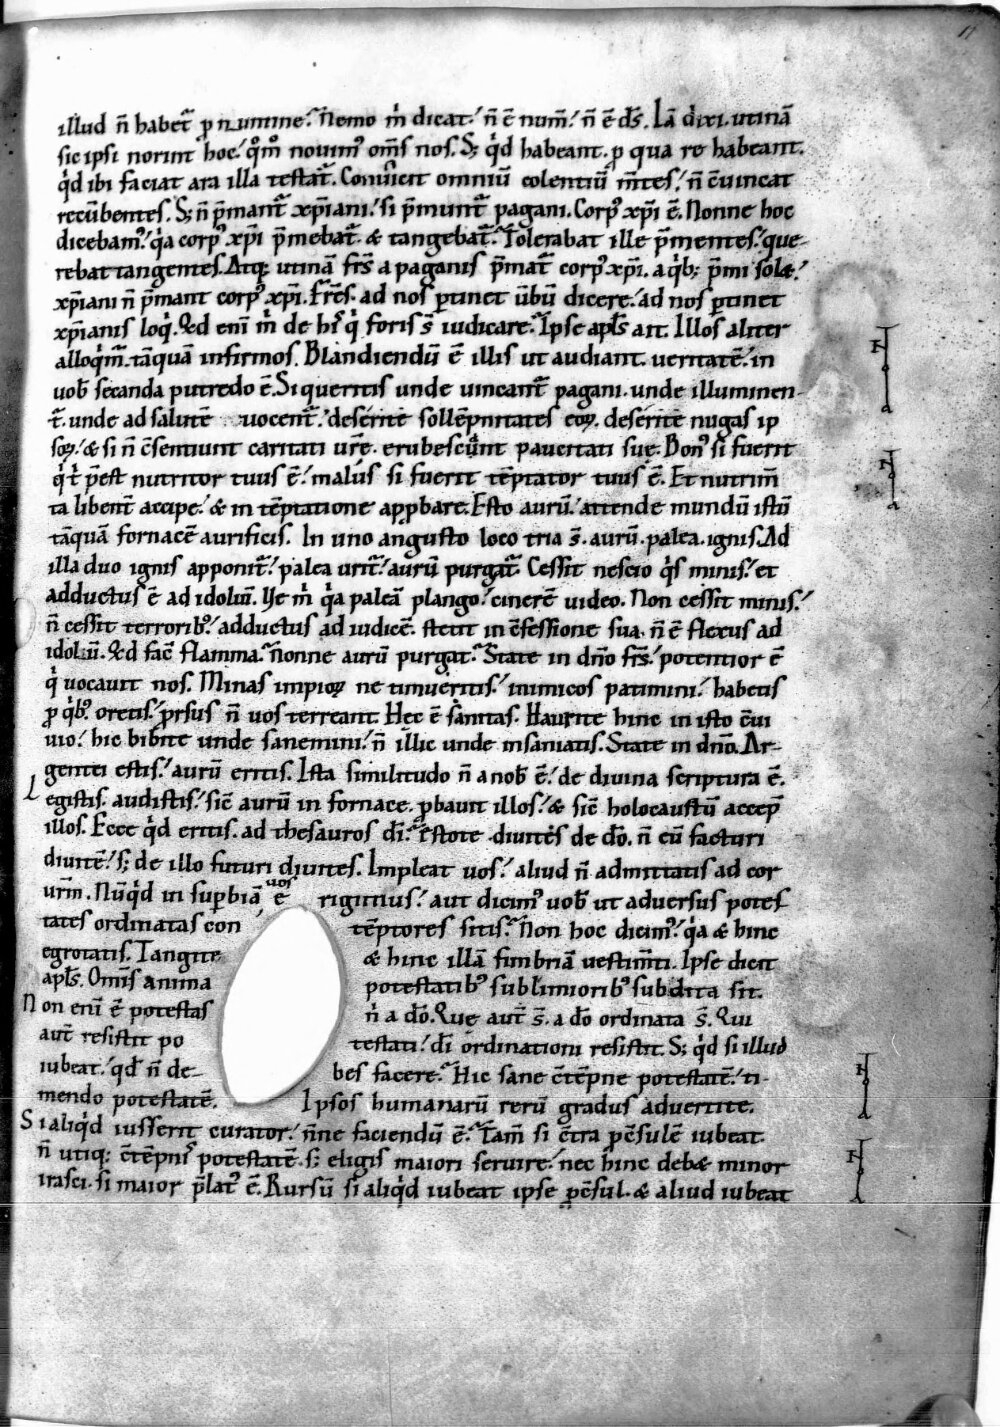 11
illud n̄ habet᷒ p numine. Nemo m̄ dicat. n̄ ē num̄. n̄ ē d̄s. Iā dixi. utinā
sic ipsi norint hoc. qͦmͦ novim᷒ om̄s nos. S; qͥd habeant. p qua re habeant.
qͥd ibi faciat ara illa testat᷒. Convicit omniū colentiū m̄tes. n̄ c̄vincat
recūbentes. S; n̄ p̄mant᷒ xp̄iani. si p̄munt᷒ pagani. Corp᷒ xp̄i ē. Nonne hoc
dicebam᷒. qͥa corp᷒ xp̄i p̄mebat᷒. & tangebat᷒. Tolerabat ille p̄mentes. que-
rebat tangentes. Atq; utinā fr̄s a paganis p̄mat᷒ corp᷒ xp̄i. a qͥb; p̄mi solæ.
xp̄iani n̄ p̄mant corp᷒ xp̄i. Fr̄es. ad nos ptinet ūbū dicere. ad nos ptinet
xp̄ianis loqͥ. Qd enī m̄ de hiͥs qͥ foris s̄ iudicare. Ipse apl̄s ait. Illos aliter
alloqͥm᷒. tāquā infirmos. Blandiendū ē illis ut audiant. veritatē. in
vob̄ secanda putredo ē. Si queritis unde vincant᷒ pagani. unde illuminen-
t᷒. unde ad salutē vocent᷒. deserite sollēpnitates eoꝝ. deserite nugas ip
soꝝ. & si n̄ c̄sentiunt caritati vr̄e. erubescunt paucitati sue. Bon᷒ si fuerit
qͥ t̄ p̄est nutritor tuus ē. malus si fuerit tēptator tuus ē. Et nutrim̄
ta libent᷒ accipe. & in tēptatione app̄bare. Esto aurū. attende mundū istū
tāquā fornacē aurificis. In uno angusto loco tria s̄. aurū. palea. ignis. Ad
illa duo ignis apponit᷒. palea urit᷒. aurū purgat᷒. Cessit nescio qͥs minis. et
adductus ē ad idolūm. Ve m̄ qͥa paleā plango. cinerē video. Non cessit minis.
n̄ cessit terrorib᷒. adductus ad iudicē. stetit in c̄fessione sua. n̄ ē flexus ad
idolūm. Qd facᷓ flamma. Nonne aurū purgat. State in dn̄o fr̄s. potentior ē
qͥ vocavit nos. Minas impioꝝ ne timueritis. inimicos patimini. habetis
p qͥb᷒ oretis. prsus n̄ vos terreant. Hec ē sanitas. Haurite hinc in isto c̄vi
vio. hic bibite unde sanemini. n̄ illic unde insaniatis. State in dn̄o. Ar-
gentei estis. aurū eritis. Ista similitudo n̄ a nob̄ ē. de divina scriptura ē.
Legistis. audistis. sic̄ aurū in fornace. pbavit illos. & sic̄ holocaustū accep̄
illos. Ecce qͥd eritis. ad thesauros d̄i. Estote divites de d̄o. n̄ eū facturi
divitē. s; de illo futuri divites. Impleat vos. aliud n̄ admittatis ad cor
vr̄m. Nūqͥd in supbiā vos ē rigimus. aut dicim᷒ vob̄ ut adversus potes
tates ordinatas con tēptores sitis. Non hoc dicim᷒. qͥa & hinc
egrotatis. Tangite & hinc illā fimbriā vestim̄ti. Ipse dicit
apl̄s. Omīs anima potestatib᷒ sublimiorib᷒ subdita sit.
Non enī ē potestas n̄ a d̄o. Que aut̄ s̄. a d̄o ordinata s̄. Qui
aut̄ resistit po testati. d̄i ordinationi resistit. S; qͥd si illud
iubeat. qd n̄ de- bes facere. Hic sane c̄tēpne potestatē. ti-
mendo potestatē. Ipsos humanarū rerū gradus advertite.
Si aliqͥd iusserit curator. n̄ne faciendū ē. Tam̄ si c̄tra pc̄sulē iubeat.
n̄ utiq; c̄tēpnis potestatē. s; eligis maiori servire. nec hinc debæ minor
irasci. si maior p̄lat᷒ ē. Rursū si aliqͥd iubeat ipse pc̄sul. & aliud iubeat